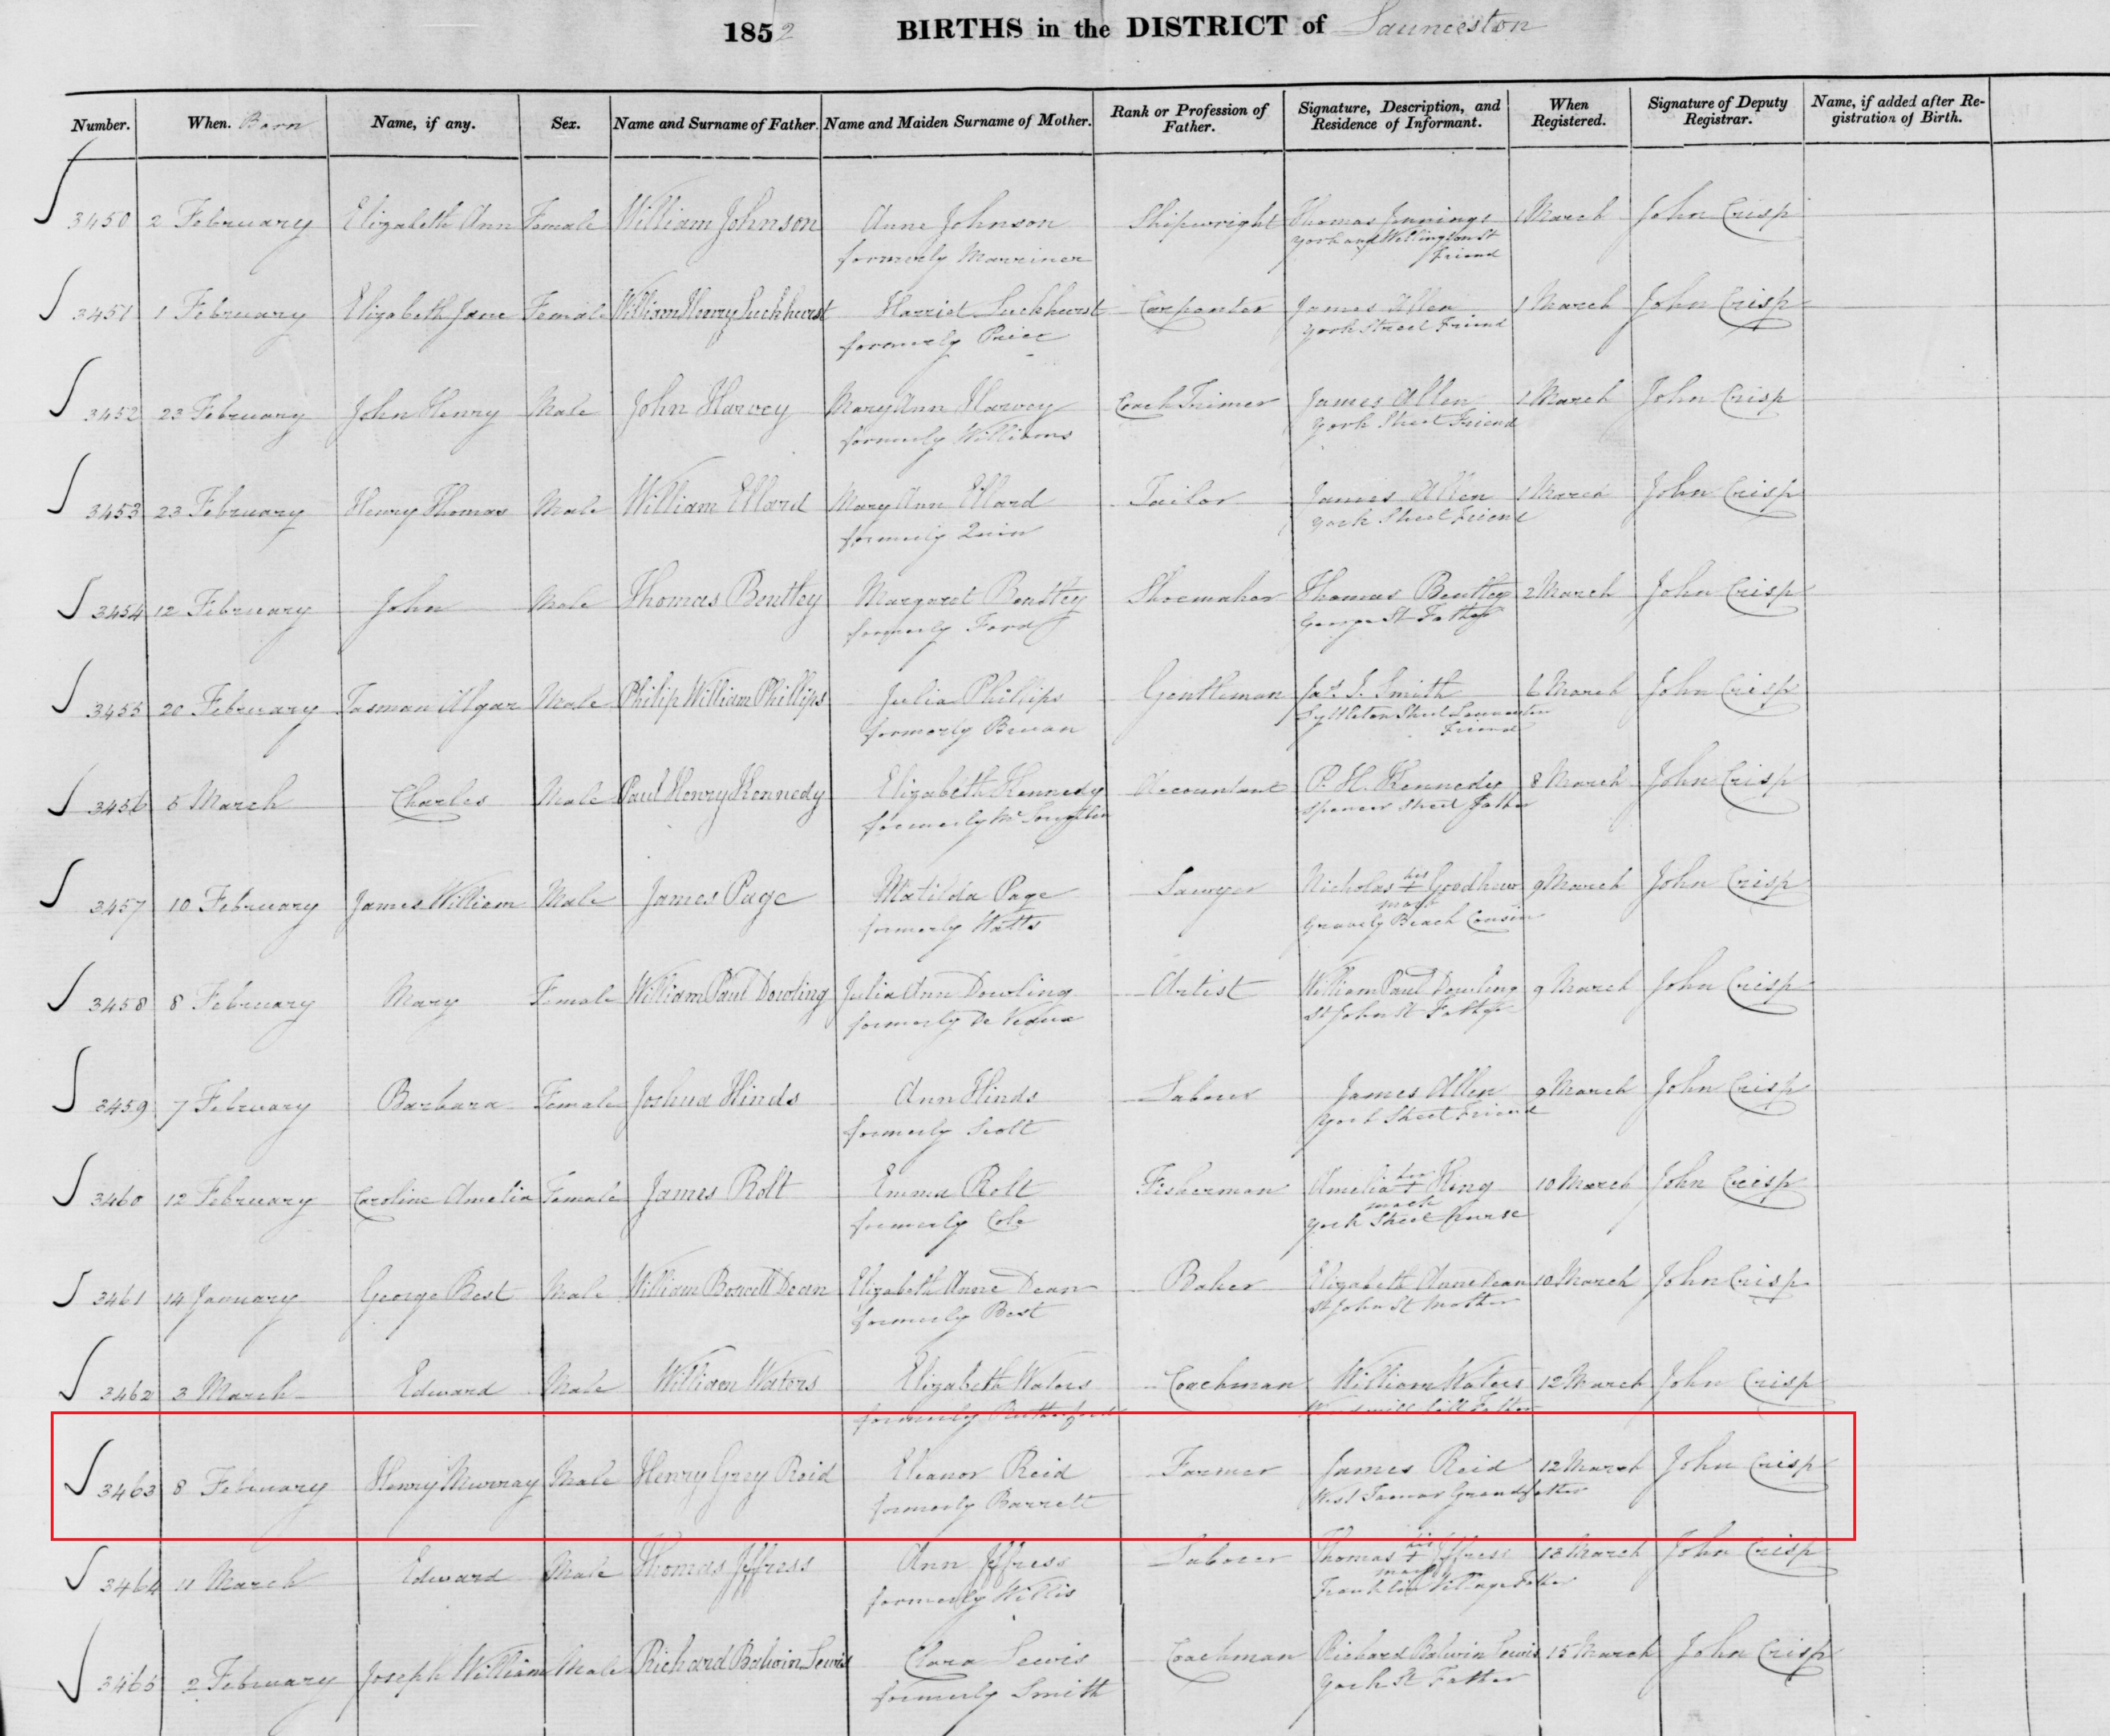 1852 BIRTHS in the DISTRICT of Launceston
Number. When. Born Name, if any. Sex. Name and Surname of Father. Name and Maiden Surname of Mother. Rank or Profession of Father. Signature, Description, and Residence of Informant. When Registered. Signature of Deputy Registrar. Name, if added after Registration of Birth.
3450 2 February Elizabeth Ann Female William Johnson Anne Johnson Shipwright Thomas Jennings 1 March John Crisp
formerly Marriner York and Wellington St Friend
3451 1 February Elizabeth Jane Female William Henry Luckhurst Harriet Luckhurst Carpenter James Allen 1 March John Crisp
formerly Price York Street Friend
3452 23 February John Henry Male John Harvey Mary Ann Harvey Coach Trimer James Allen 1 March John Crisp
formerly Williams York Street Friend
3453 23 February Henry Thomas Male William Ellard Mary Ann Ellard Tailor James Allen 1 March John Crisp
formerly Quin York Street Friend
3454 12 February John Male Thomas Bentley Margaret Bentley Shoemaker Thomas Bentley 2 March John Crisp
formerly Ford George St Father
3455 20 February Tasman Algar Male Philip William Phillips Julia Phillips Gentleman Jas. J. Smith 6 March John Crisp
formerly Bevan Lyttleton Street Launceston Friend
3456 5 March Charles Male Paul Henry Kennedy Elizabeth Kennedy Accountant P. H. Kennedy 8 March John Crisp
formerly Spencer Street Father
3457 10 February James William Male James Page Matilda Page Sawyer Nicholas his + mark Goodhew 9 March John Crisp
formerly Watts Gravely Beach Cousin
3458 8 February Mary Female William Paul Dowling Julia Ann Dowling Artist William Paul Dowling 9 March John Crisp
formerly De Veaux St John St Father
3459 7 February Barbara Female Joshua Hinds Ann Hinds Laborer James Allen 9 March John Crisp
formerly Scott York Street Friend
3460 12 February Caroline Amelia Female James Rolt Emma Rolt Fisherman Amelia her + mark King 10 March John Crisp
formerly Cole York Street Nurse
3461 14 January George Best Male William Boswell Dean Elizabeth Anne Dean Baker Elizabeth Anne Dean 10 March John Crisp
formerly Best St John St Mother
3462 3 March Edward Male William Waters Elizabeth Waters Coachman William Waters 12 March John Crisp
formerly Rutherford Windmill hill Father
3463 8 February Henry Murray Male Henry Grey Reid Eleanor Reid Farmer James Reid 12 March John Crisp
formerly Barrett West Tamar Grandfather
3464 11 March Edward Male Thomas Jeffress Ann Jeffress Laborer Thomas his + mark Jeffress 13 March John Crisp
formerly Willis Franklin Village Father
3465 2 February Joseph William Male Richard Balwin Lewis Clara Lewis Coachman Richard Balwin Lewis 15 March John Crisp
formerly Smith York St Father